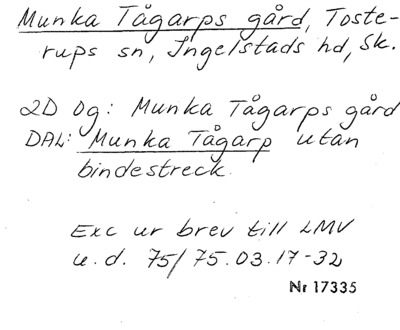 Munka Tågarps gård, Toste-
rups sn, Ingelstads hd, Sk.
2D 0g: Munka Tågarps gård
DAL: Munka Tågarp utan
bindestreck.
Exc ur brev till LMV
u.d. 75/75.03.17-32
Nr 17335